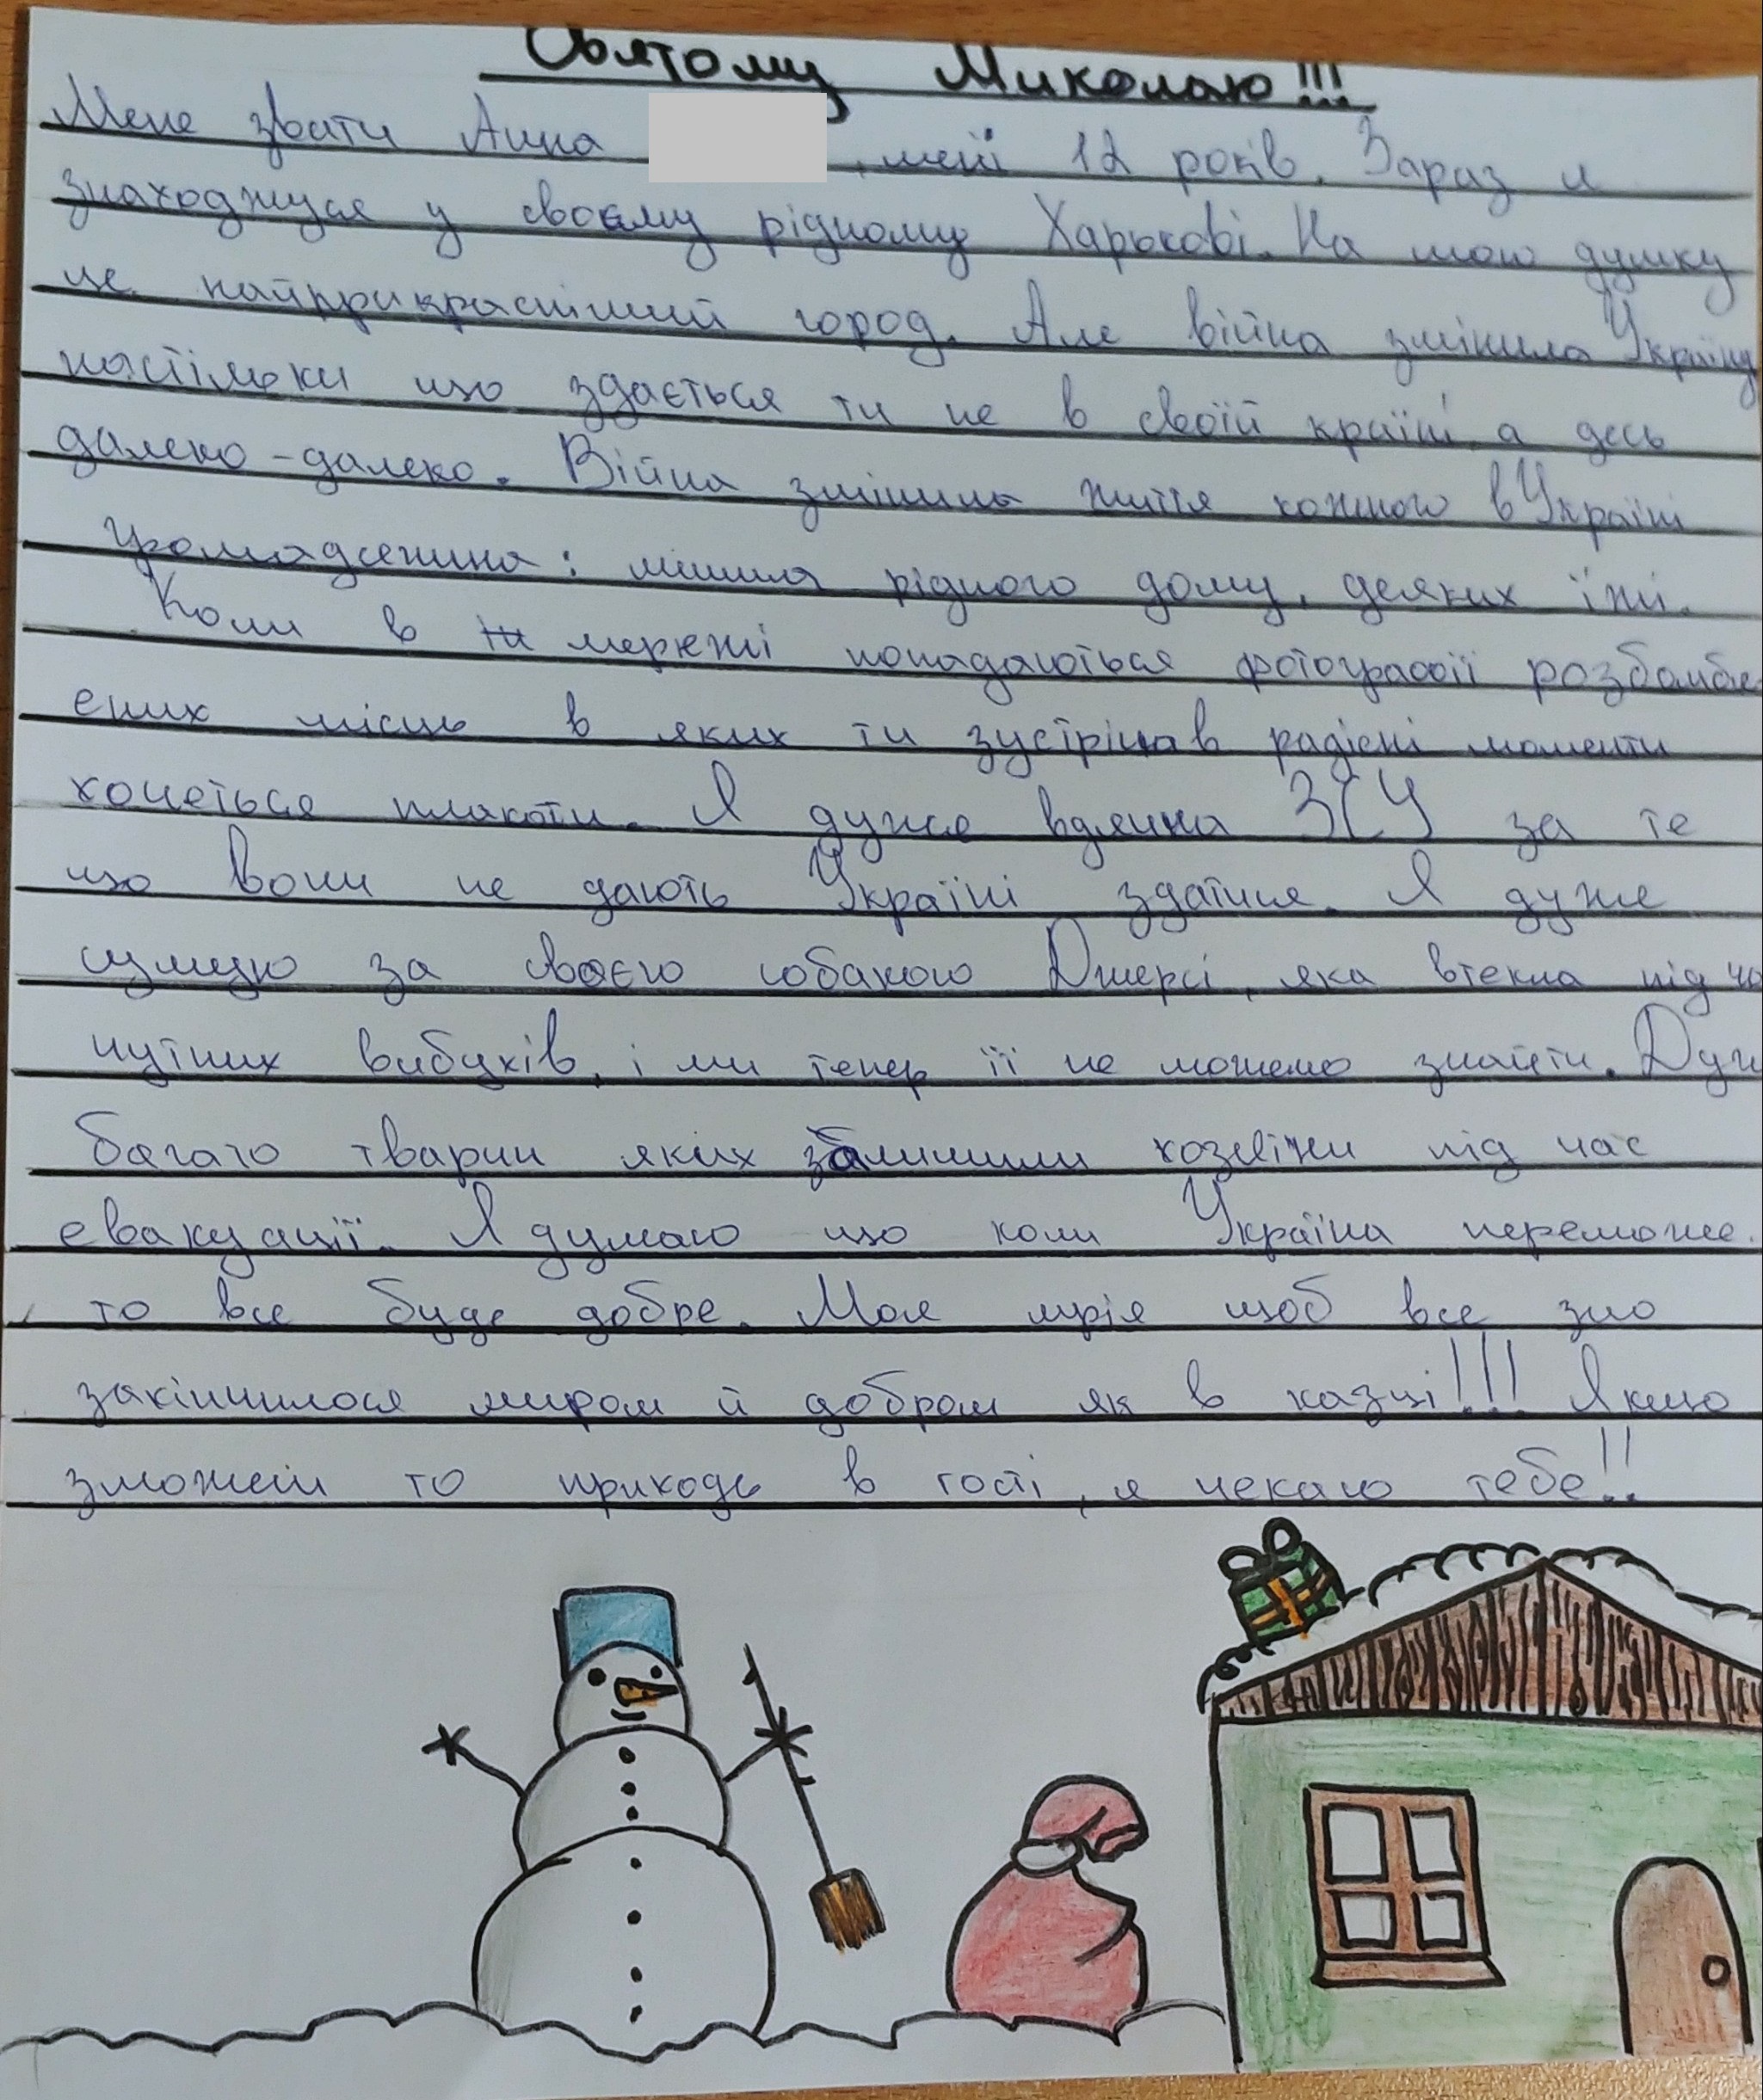 Святому Миколаю!!!
Мене звати Анна , мені 12 років. Зараз я
знаходжуся у своєму рідному Харькові. На мою думку
це найприкрасніший город. Але війна змінила Україну
настільки що здається ти не в своїй країні а десь
далеко-далеко. Війна змінила життя кожного в Україні
громадянина: лишила рідного дому, деяких їжі.
Коли в мережі попадаються фотографії розбомбл
ених місць в яких ти зустрічав радісні моменти
хочеться плакати. Я дуже вдячна ЗСУ за те
що вони не дають Україні здатися. Я дуже
сумую за своєю собакою Джерсі, яка втекла під час
чутних вибухів, і ми тепер її не можемо знайти. Дуж
багато тварин яких залишили хозяїни під час
евакуації. Я думаю що коли Україна переможе.
то все буде добре. Моя мрія щоб все зло
закінчилося миром й добром як в казці!!! Якщо
зможеш то приходь в гості, я чекаю тебе!!